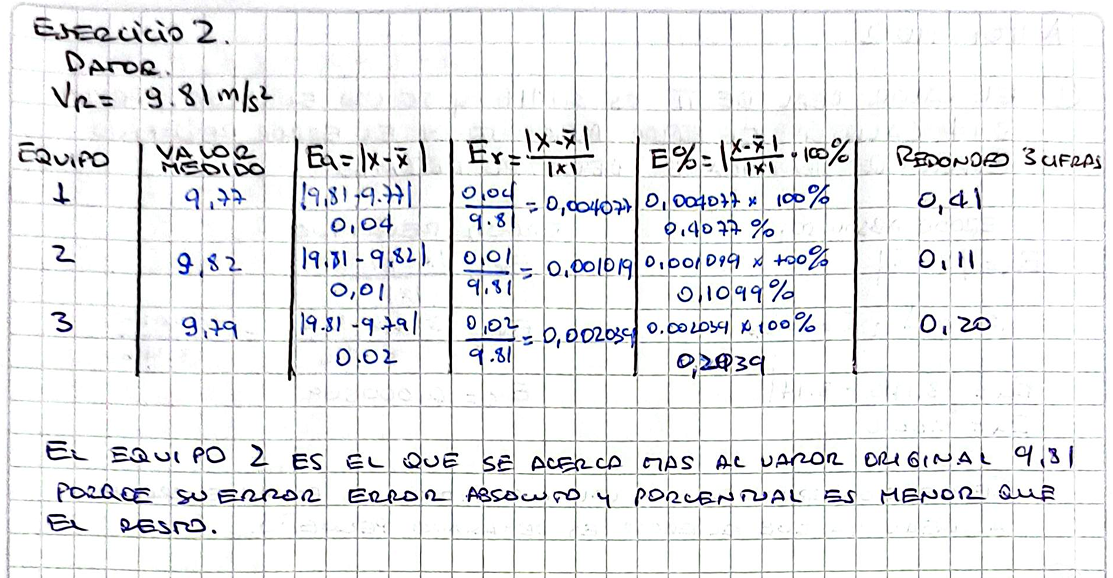 EJERCICIO 2.
DATOR.
VR = 9.81 m/s²
EQUIPO | VALOR MEDIDO | Ea = |x-x̄| | Er = |x-x̄| / |x| | E% = |x-x̄| / |x| · 100% | REDONDEO 3 CIFRAS
1 | 9,77 | |9,81-9.77| | 0,04 / 9.81 = 0,004077 | 0,004077 x 100% | 0,41
0,04 | 0,4077 %
2 | 9,82 | |9,81-9,82| | 0,01 / 9,81 = 0,001019 | 0,001099 x 100% | 0,11
0,01 | 0,1099%
3 | 9,79 | |9.81-9.79| | 0,02 / 9.81 = 0,002039 | 0.002039 x 100% | 0,20
0.02 | 0,2039
EL EQUIPO 2 ES EL QUE SE ACERCA MAS AL VAROR ORIGINAL 9,81
PORQUE SU ERROR ERROR ABSOLUTO Y PORCENTUAL ES MENOR QUE
EL RESTO.